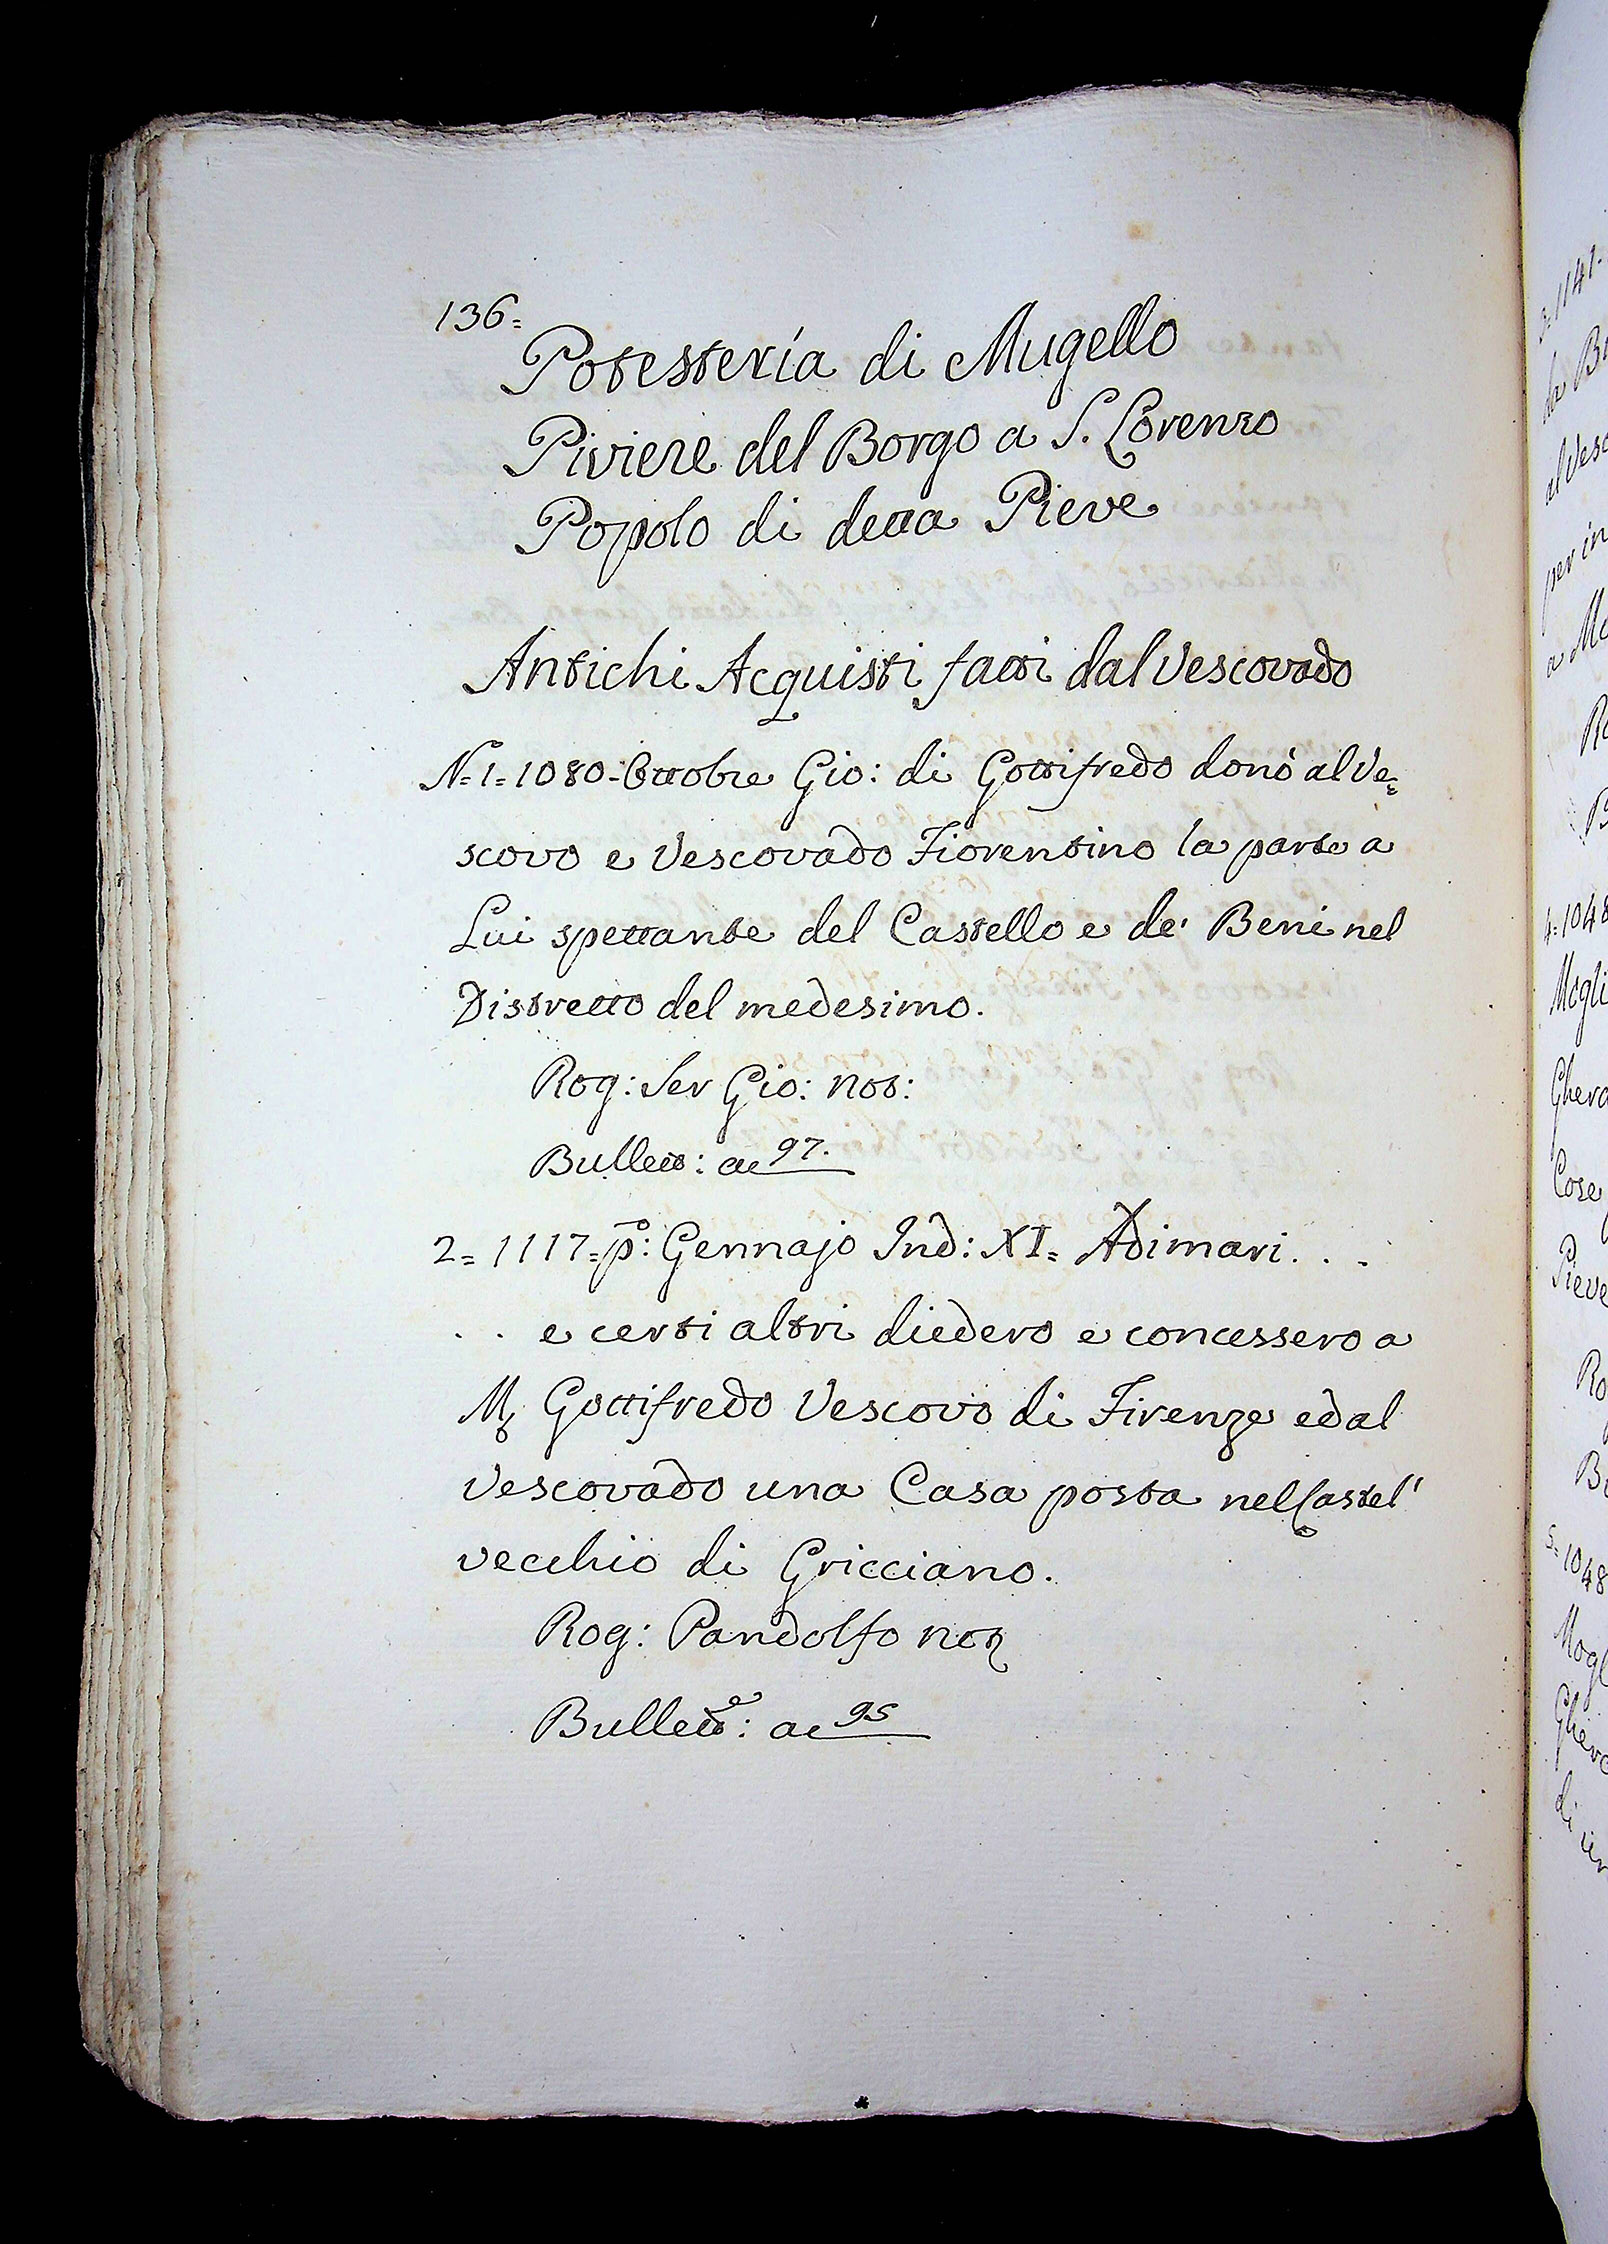 136=
Potesteria di Mugello
Piviere del Borgo a S. Lorenzo
Popolo di detta Pieve
Antichi Acquisti fatti dal Vescovado
N.=1=1080-Ottobre Gio: di Gottifredo donò al Ve=
scovo e Vescovado Fiorentino la parte a
Lui spettante del Castello e de' Beni nel
Distretto del medesimo.
Rog: Ser Gio: not:
Bullett: ac 97.
2= 1117=p.º: Gennajo Ind: XI= Adimari. . .
. . e certi altri diedero e concessero a
M. Gottifredo Vescovo di Firenze ed al
Vescovado una Casa posta nel Castel'
vecchio di Gricciano.
Rog: Pandolfo not
Bullettº: ac 95
3=1141-
da Bu
al Vesc
per in
a Mo
Ro
B
4=1048
Mogli
Ghera
Cose
Pieve
Ro
Bu
5=1048
Mogl
Ghera
di